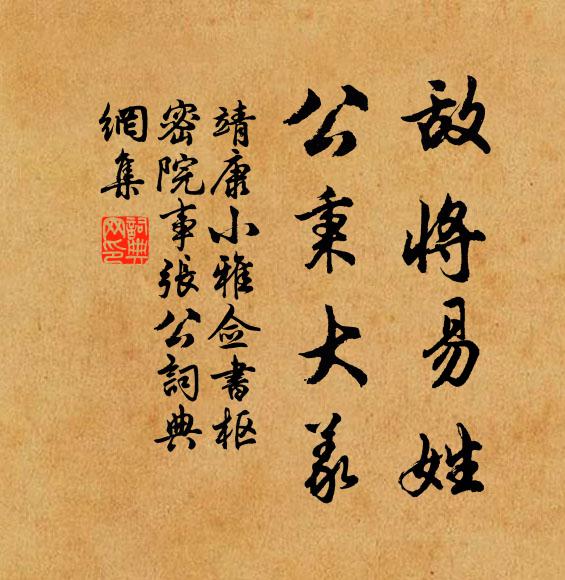 敌将易姓
公秉大义
靖康小雅佥书枢
密院事张公词典
網集
詞典
网印